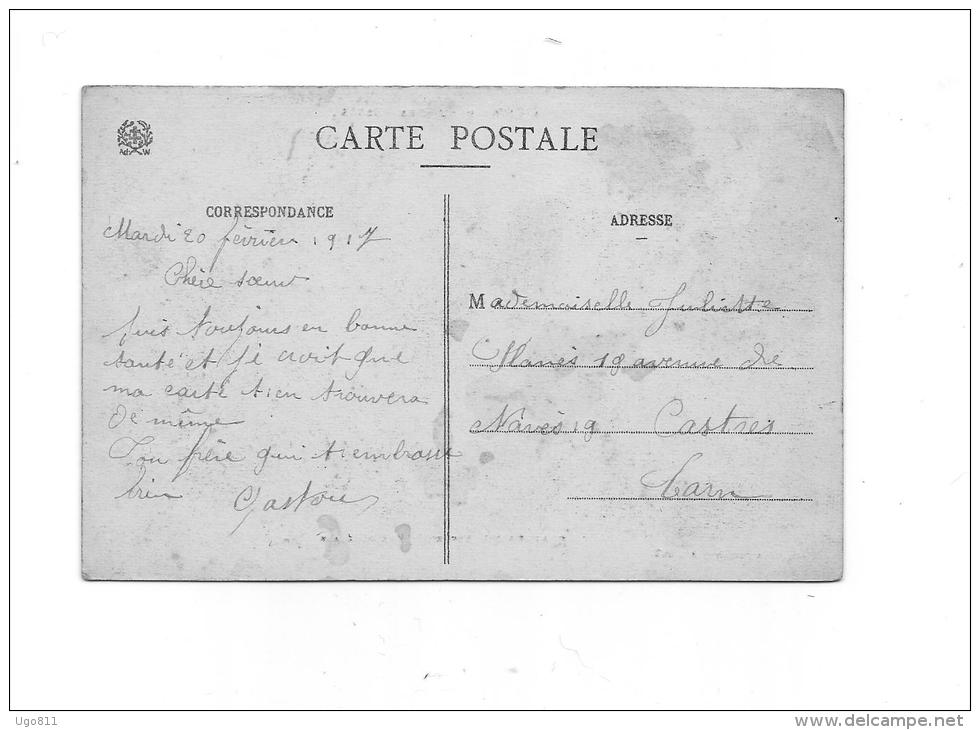 CARTE POSTALE
CORRESPONDANCE
Mardi 20 février 1917
Chère sœur
suis toujours en bonne
santé et je croit que
ma carte t'en trouvera
de même
Ton frère qui t'embrasse
bien Gaston
ADRESSE
Mademoiselle Juliette
19 avenue de
Navès 19 Castres
Tarn
Ugo811
delcampe.net